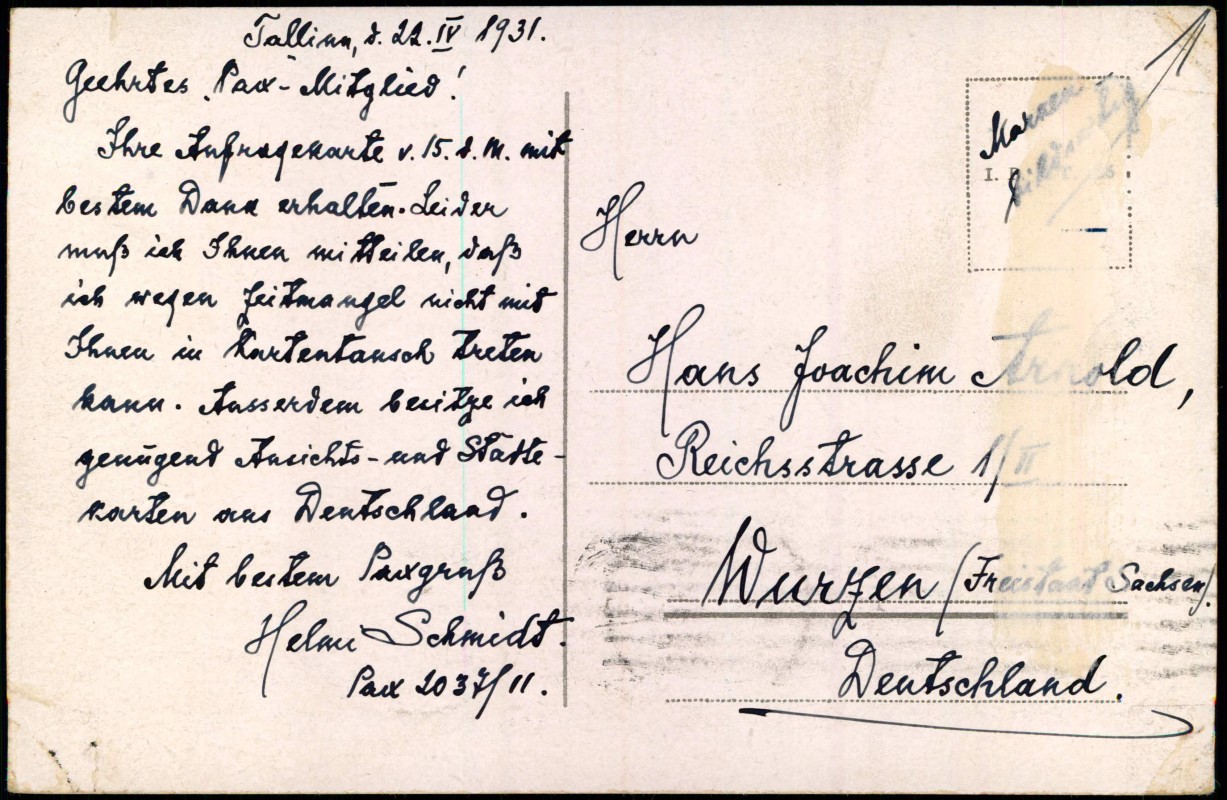 Tallinn, d. 22. IV 1931.
Geehrtes Pax-Mitglied!
Ihre Anfragekarte v. 15. d. M. mit
bestem Dank erhalten. Leider
muß ich Ihnen mitteilen, daß
ich wegen Zeitmangel nicht mit
Ihnen in Kartentausch treten
kann. Ausserdem besitze ich
genügend Ansichts- und Städte-
karten aus Deutschland.
Mit bestem Paxgruß
Helmi Schmidt.
Pax 2037/11.
Marken
bildseitig
I.
Herrn
Hans Joachim Arnold,
Reichsstrasse 1/II
Wurzen (Freistaat Sachsen).
Deutschland.